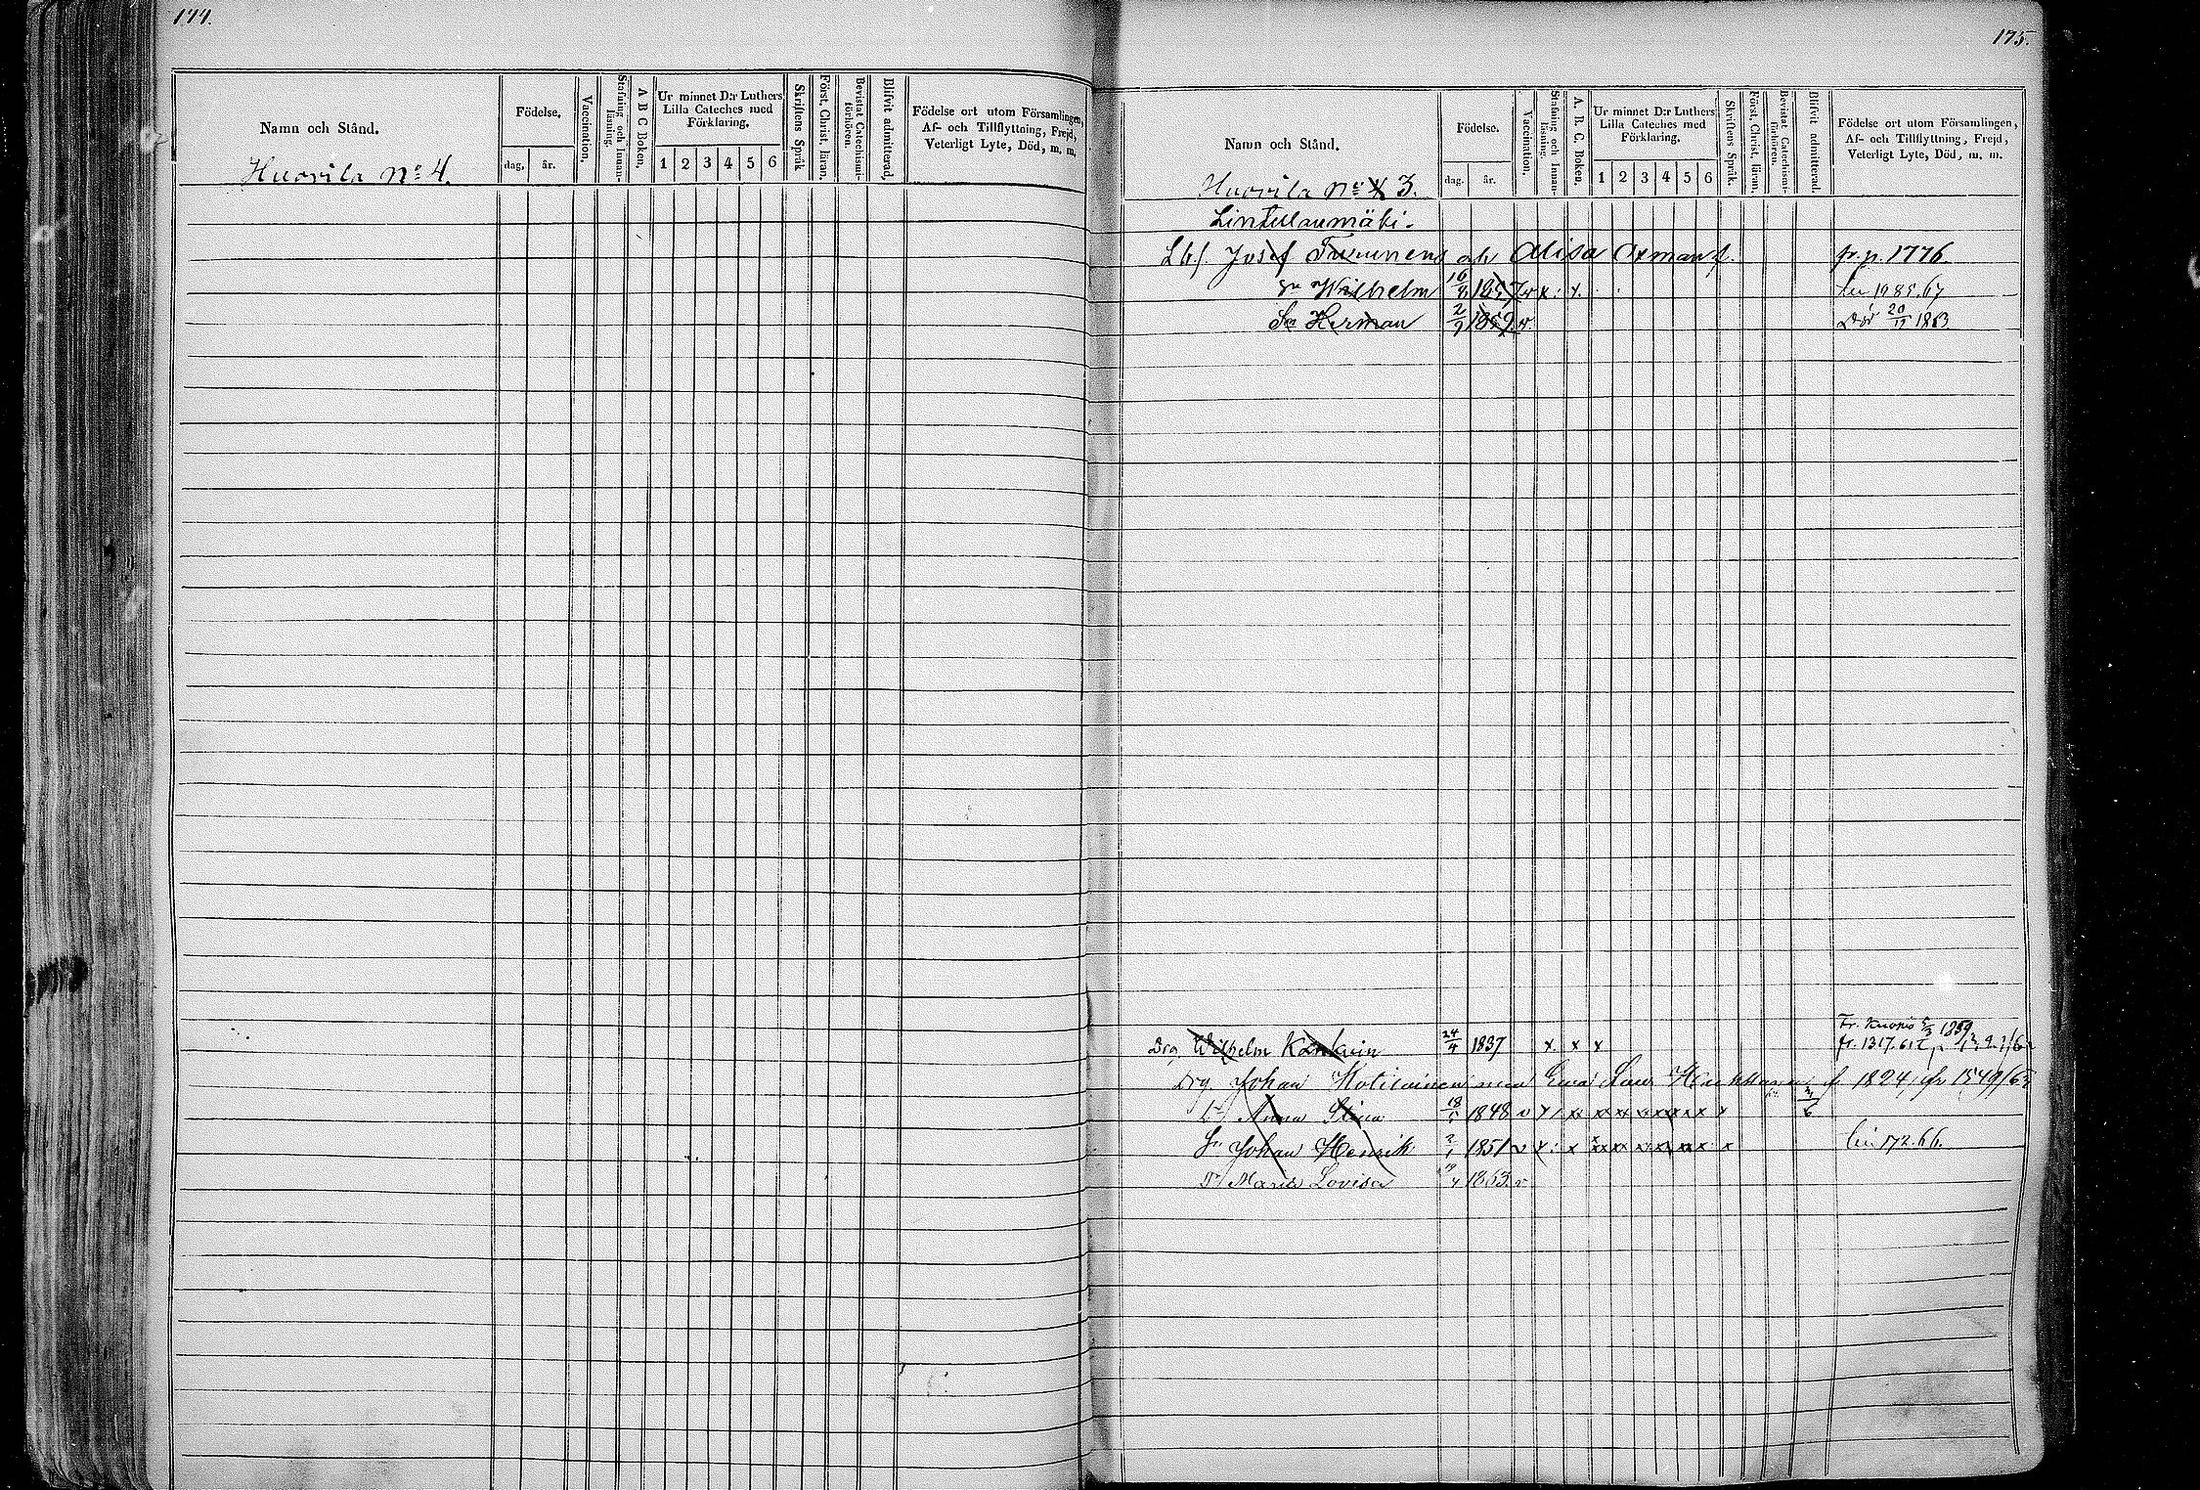 174.
Namn och Stånd.
Födelse.
dag. år.
Vaccination.
Stafning och Innanläsning.
A B C Boken.
Ur minnet D:r Luthers Lilla Cateches med Förklaring.
1 2 3 4 5 6
Skriftens Språk
Först. Christ. läran.
Bevistat Catechismiförhören.
Blifvit admitterad.
Födelse ort utom Församlingen,
Af- och Tillflyttning, Frejd,
Veterligt Lyte, Död, m. m.
Huovila No 4.
175.
Namn och Stånd.
Födelse.
dag. år.
Vaccination.
Stafning och Innanläsning.
A. B. C. Boken.
Ur minnet D:r Luthers Lilla Cateches med Förklaring.
1 2 3 4 5 6
Skriftens Språk.
Först. Christ. läran.
Bevistat Catechismiförhören.
Blifvit admitterad
Födelse ort utom Församlingen,
Af- och Tillflyttning, Frejd,
Veterligt Lyte, Död, m. m.
Huovila No 4 3.
Josef och fr. p. 1776.
Sn Wilhelm 1857 v x
Sn Herman 2/9 1859 v. Död 20/12 1863
Fr. Kuopio 1859
Drg. Wilhelm 24/4 1837 x x x fr. 1317.61
Drg Johan Kotilainen f. 1824, fr 1549/63
Dr Anna Stina 18/ 1848 v
Sn Johan Henrik 2/1 1851 v 172.66.
Dr Maria Lovisa 1863 v